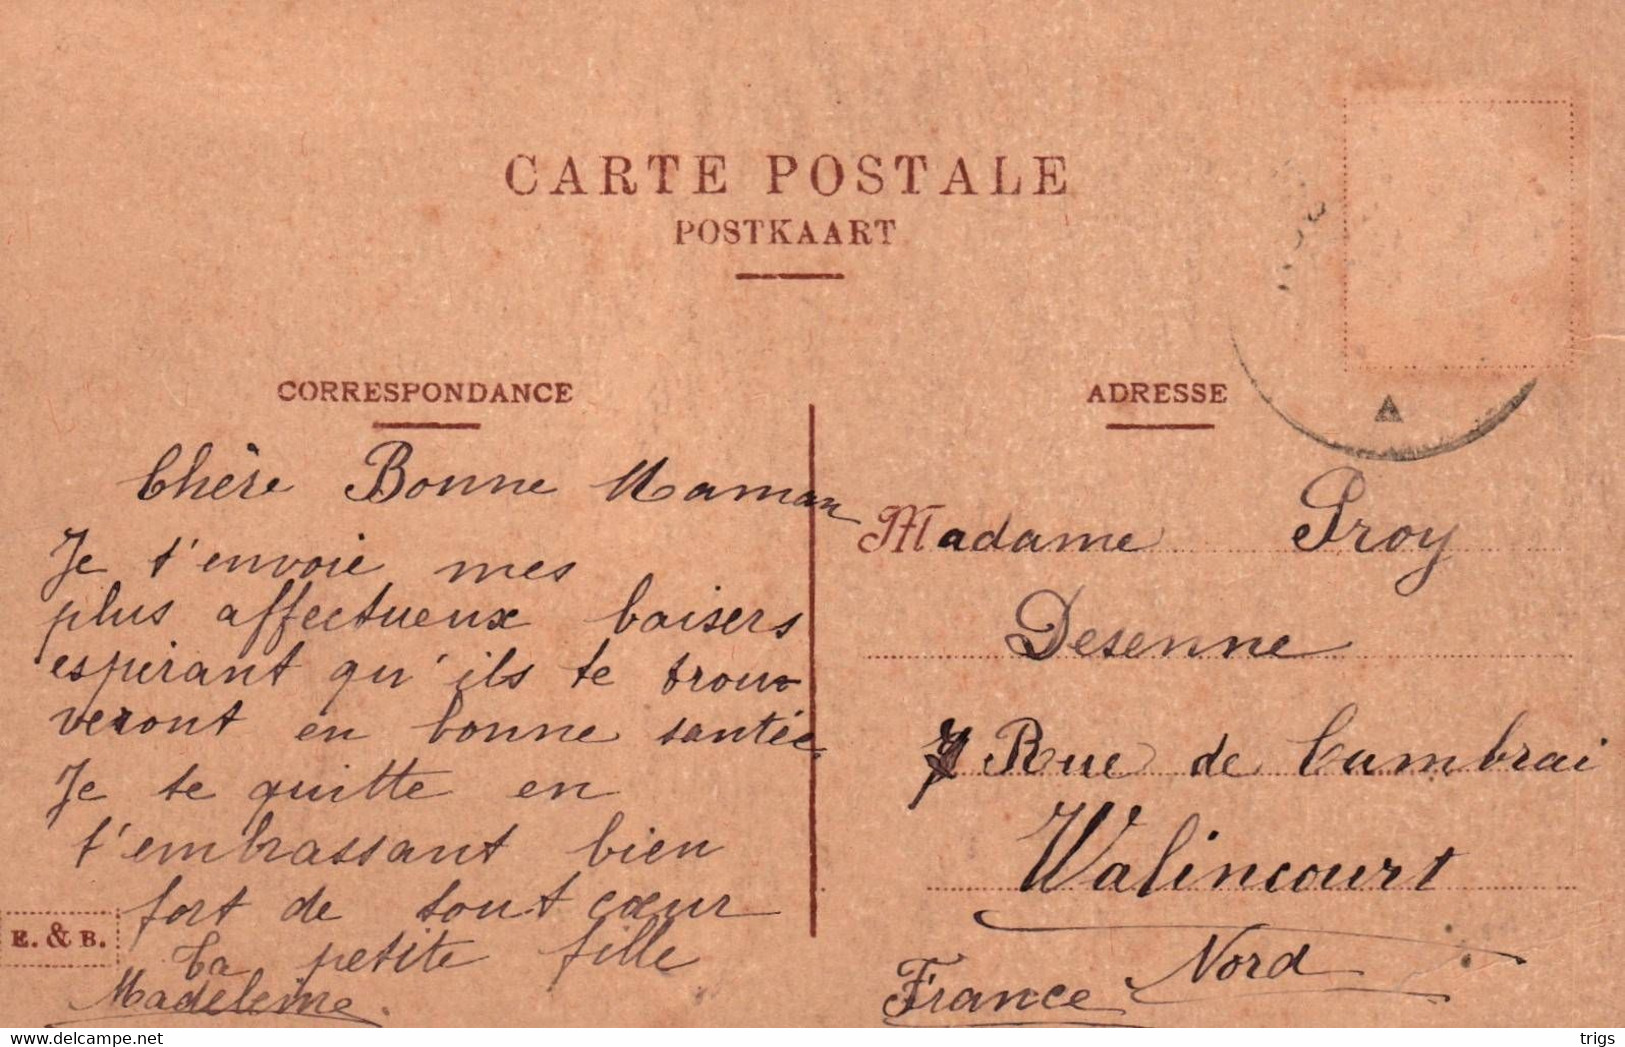 CARTE POSTALE
POSTKAART
CORRESPONDANCE
Chère Bonne Maman
Je t'envoie mes
plus affectueux baisers
espérant qu'ils te trou-
veront en bonne santée
Je te quitte en
t'embrassant bien
fort de tout cœur
Ta petite fille
Madeleine.
E. & B.
ADRESSE
Madame Proy
Desenne
7 Rue de Cambrai
Walincourt
Nord
France
delcampe.net
trigs